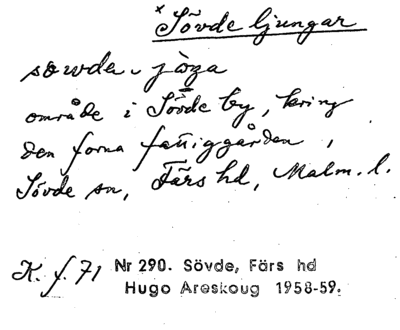 * Sövde ljungar
område i Sövde by, kring
den forna fattiggården,
Sövde sn, Färs hd, Malm. l.
K. f. 71 Nr 290. Sövde, Färs hd
Hugo Areskoug 1958-59.